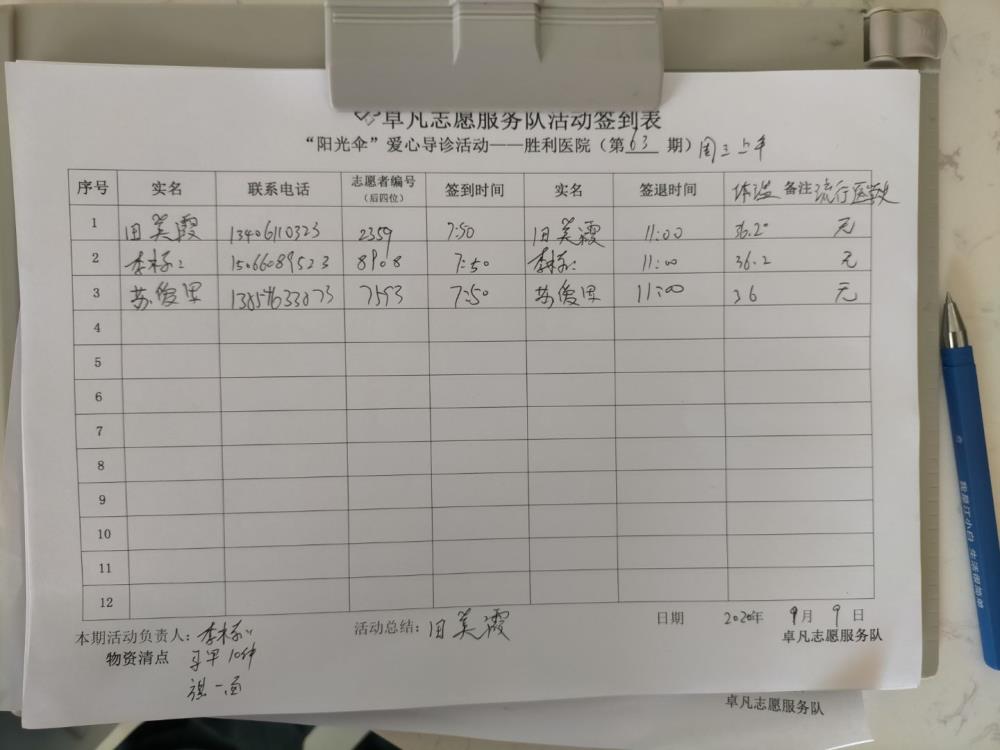 卓凡志愿服务队活动签到表
“阳光伞”爱心导诊活动——胜利医院（第63期）周三上午
序号 实名 联系电话 志愿者编号（后四位） 签到时间 实名 签退时间 体温 备注 流行医学史
1 田美霞 13406110323 2359 7:50 田美霞 11:00 36.2 无
2 15066089523 8908 7:50 11:00 36.2 无
3 苏俊果 7593 7:50 苏俊果 11:00 36 无
4
5
6
7
8
9
10
11
12
本期活动负责人： 活动总结：田美霞 日期 2020年 9月 9日
物资清点 马甲10件 卓凡志愿服务队
旗一面
卓凡志愿服务队